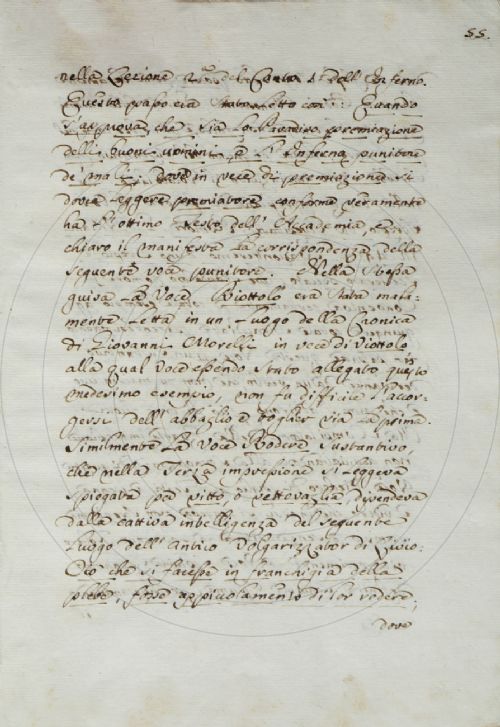 55.
nella Lezione 2.da del Canto 1. dell' Inferno.
Questo passo era stato letto così: Quando
s' approva, che sia lo Paradiso premiazione
delli buoni uomini, e l' Inferno punitore
de' mali; dove in vece di premiazione si
dovea leggere premiatore conforme veramente
ha l' ottimo Testo dell' Accademia, e
chiaro il manifesta la corrispondenza della
seguente voce punitore. Nella stessa
guisa la Voce Biottolo era stata mala-
mente letta in un luogo della Cronica
di Giovanni Morelli in vece di Viottolo
alla qual voce essendo stato allegato questo
medesimo esempio, non fu difficile l' accor-
gersi dell' abbaglio e toglier via la prima.
Similmente la voce Rodere sustantivo,
che nella Terza impressione si leggeva
spiegata per vitto o vettovaglia dipendeva
dalla cattiva intelligenza del seguente
luogo dell' Antico Volgarizzator di Livio:
Ciò che si facesse in franchigia della
plebe, fosse appiccolamento di lor rodere,
dove